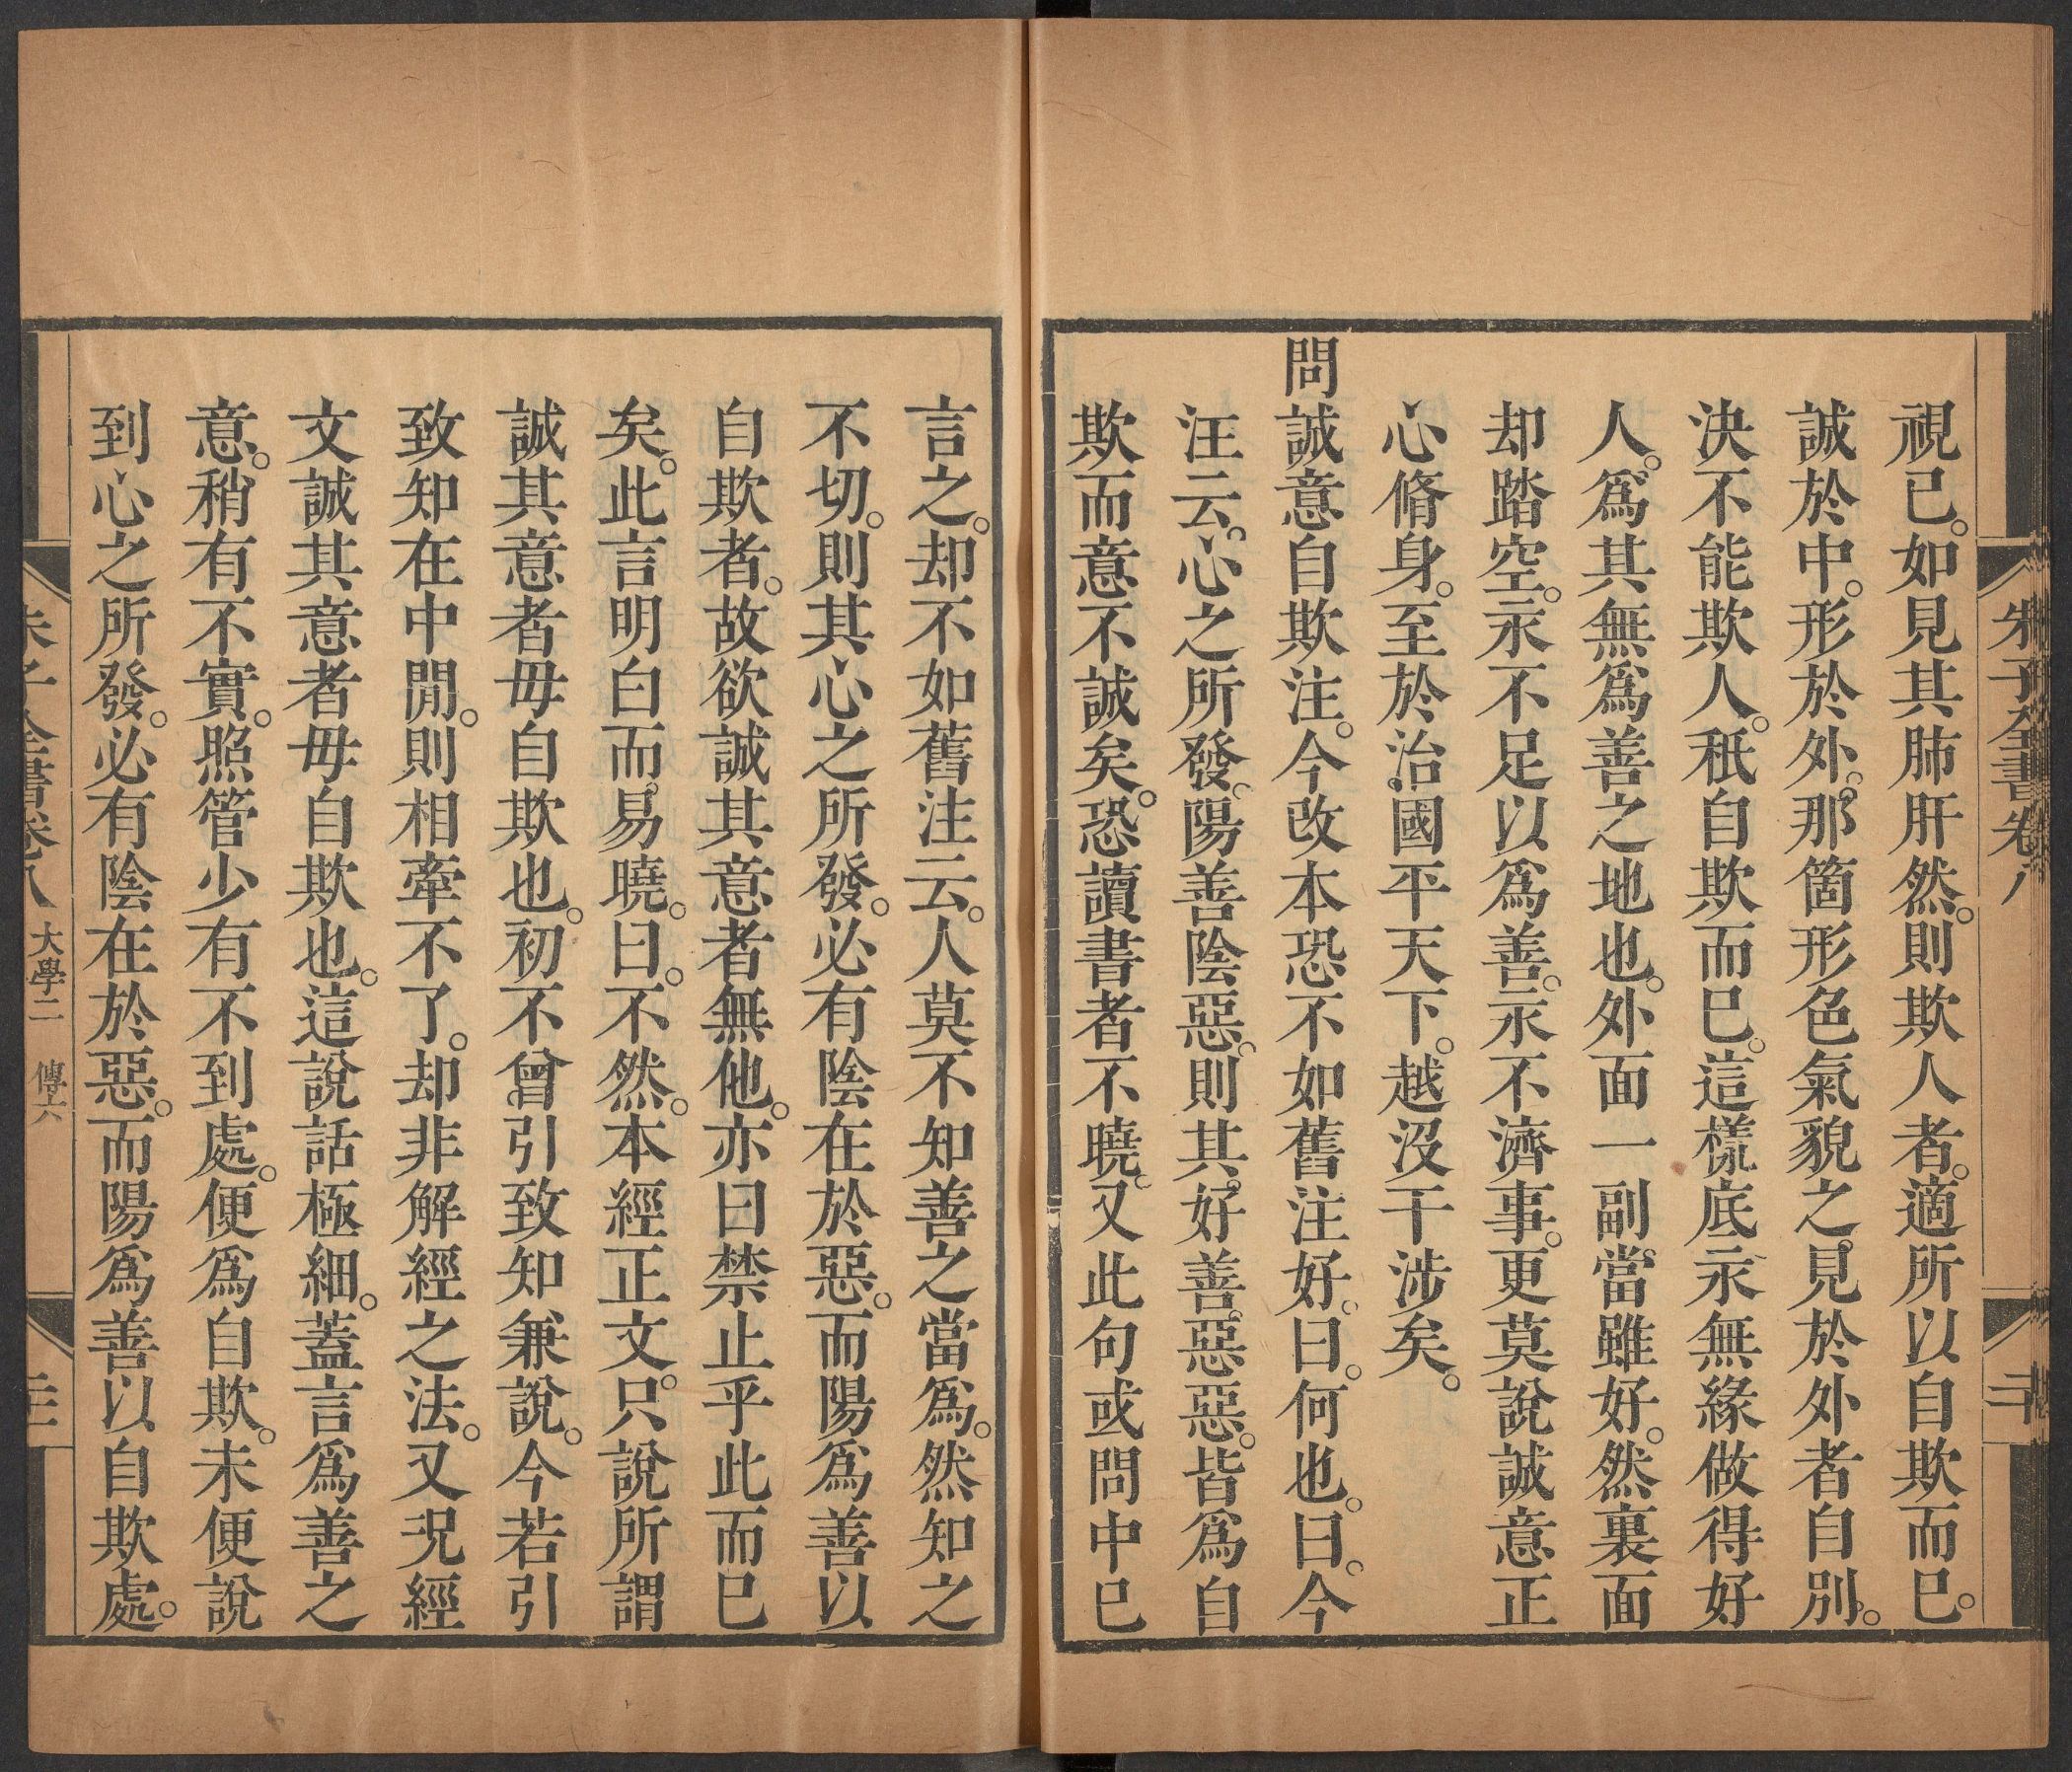 朱子全書卷八
視已。如見其肺肝然。則欺人者。適所以自欺而已。
誠於中。形於外。那箇形色氣貌之。見於外者自別。
決不能欺人。秖自欺而已。這樣底永無緣做得好
人。爲其無爲善之地也。外面一副當雖好。然裏面
却踏空。永不足以爲善。永不濟事。更莫說誠意正
心脩身。至於治國平天下。越沒干涉矣。
問誠意自欺注。今改本恐不如舊注好。曰。何也。曰。今
注云。心之所發。陽善陰惡。則其好善。惡惡。皆爲自
欺而意不誠矣。恐讀書者不曉。又此句或問中已
言之。却不如舊注云。人莫不知善之當爲。然知之
不切。則其心之所發。必有陰在於惡。而陽爲善以
自欺者。故欲誠其意者無他。亦曰禁止乎此而已
矣。此言明白而。易曉。曰。不然。本經正文。只說所謂
誠其意者毋自欺也。初不曾引致知兼說。今若引
致知在中閒。則相牽不了。却非解經之法。又況經
文誠其意者毋自欺也。這說話極細。蓋言爲善之
意。稍有不實。照管少有不到處。便爲自欺。未便說
到心之所發。必有陰在於惡。而陽爲善以自欺處。
朱子全書卷八 大學二 傳六